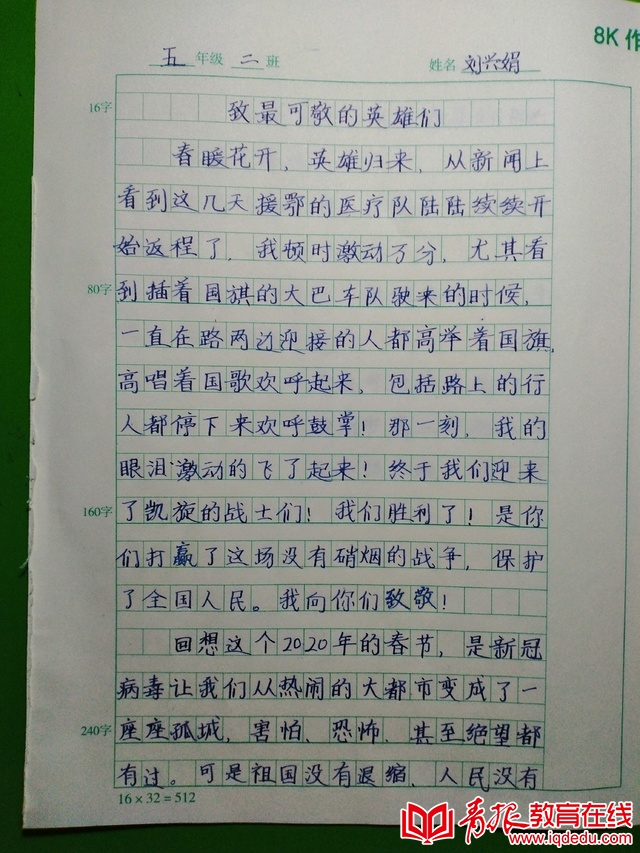 8K 作
五 年级 二 班 姓名 刘兴娟
16字
致最可敬的英雄们
春暖花开，英雄归来，从新闻上
看到这几天援鄂的医疗队陆陆续续开
始返程了，我顿时激动万分，尤其看
80字
到插着国旗的大巴车队驶来的时候，
一直在路两边迎接的人都高举着国旗，
高唱着国歌欢呼起来，包括路上的行
人都停下来欢呼鼓掌！那一刻，我的
眼泪激动的飞了起来！终于我们迎来
160字
了凯旋的战士们！我们胜利了！是你
们打赢了这场没有硝烟的战争，保护
了全国人民。我向你们致敬！
回想这个2020年的春节，是新冠
病毒让我们从热闹的大都市变成了一
240字
座座孤城，害怕、恐怖、甚至绝望都
有过。可是祖国没有退缩，人民没有
16×32=512
青报教育在线
www.iqdedu.com